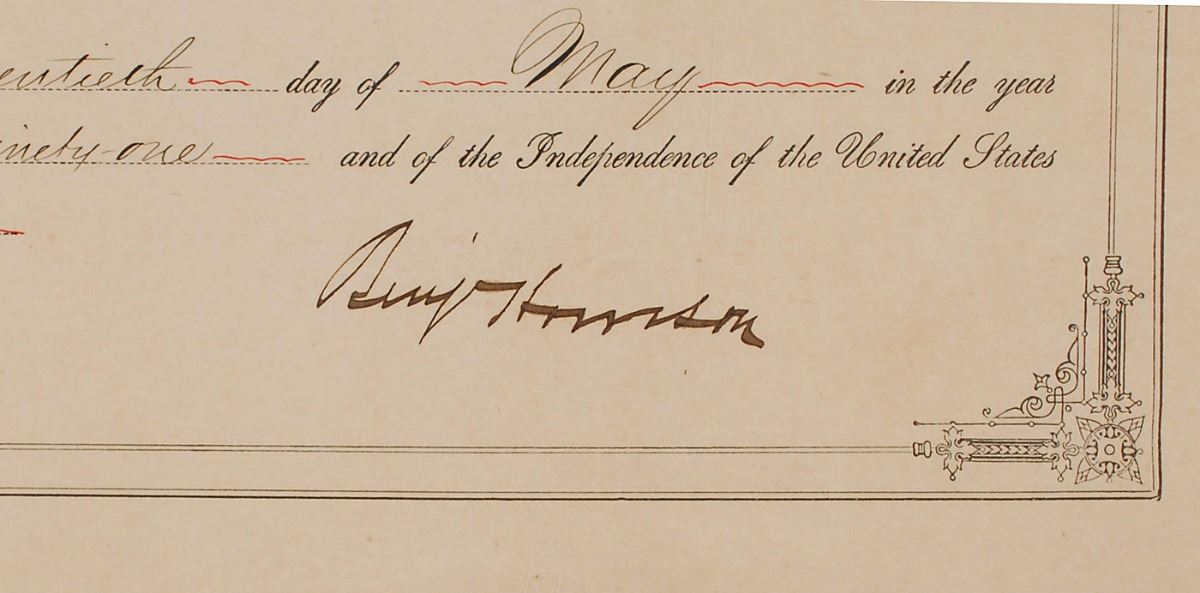 entieth day of May in the year
inety-one and of the Independence of the United States
Benj Harrison